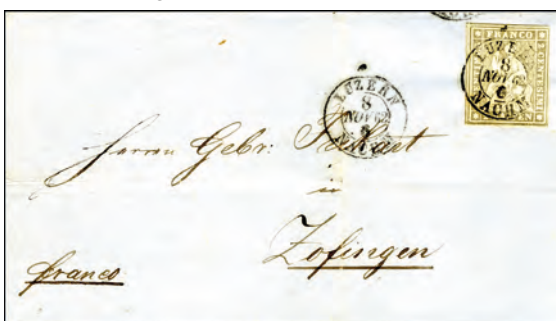 FRANCO
LUZERN
8
NOV 62
NACHM
LUZERN
8
NOV 62
Herren Gebr:
in
Zofingen
franco